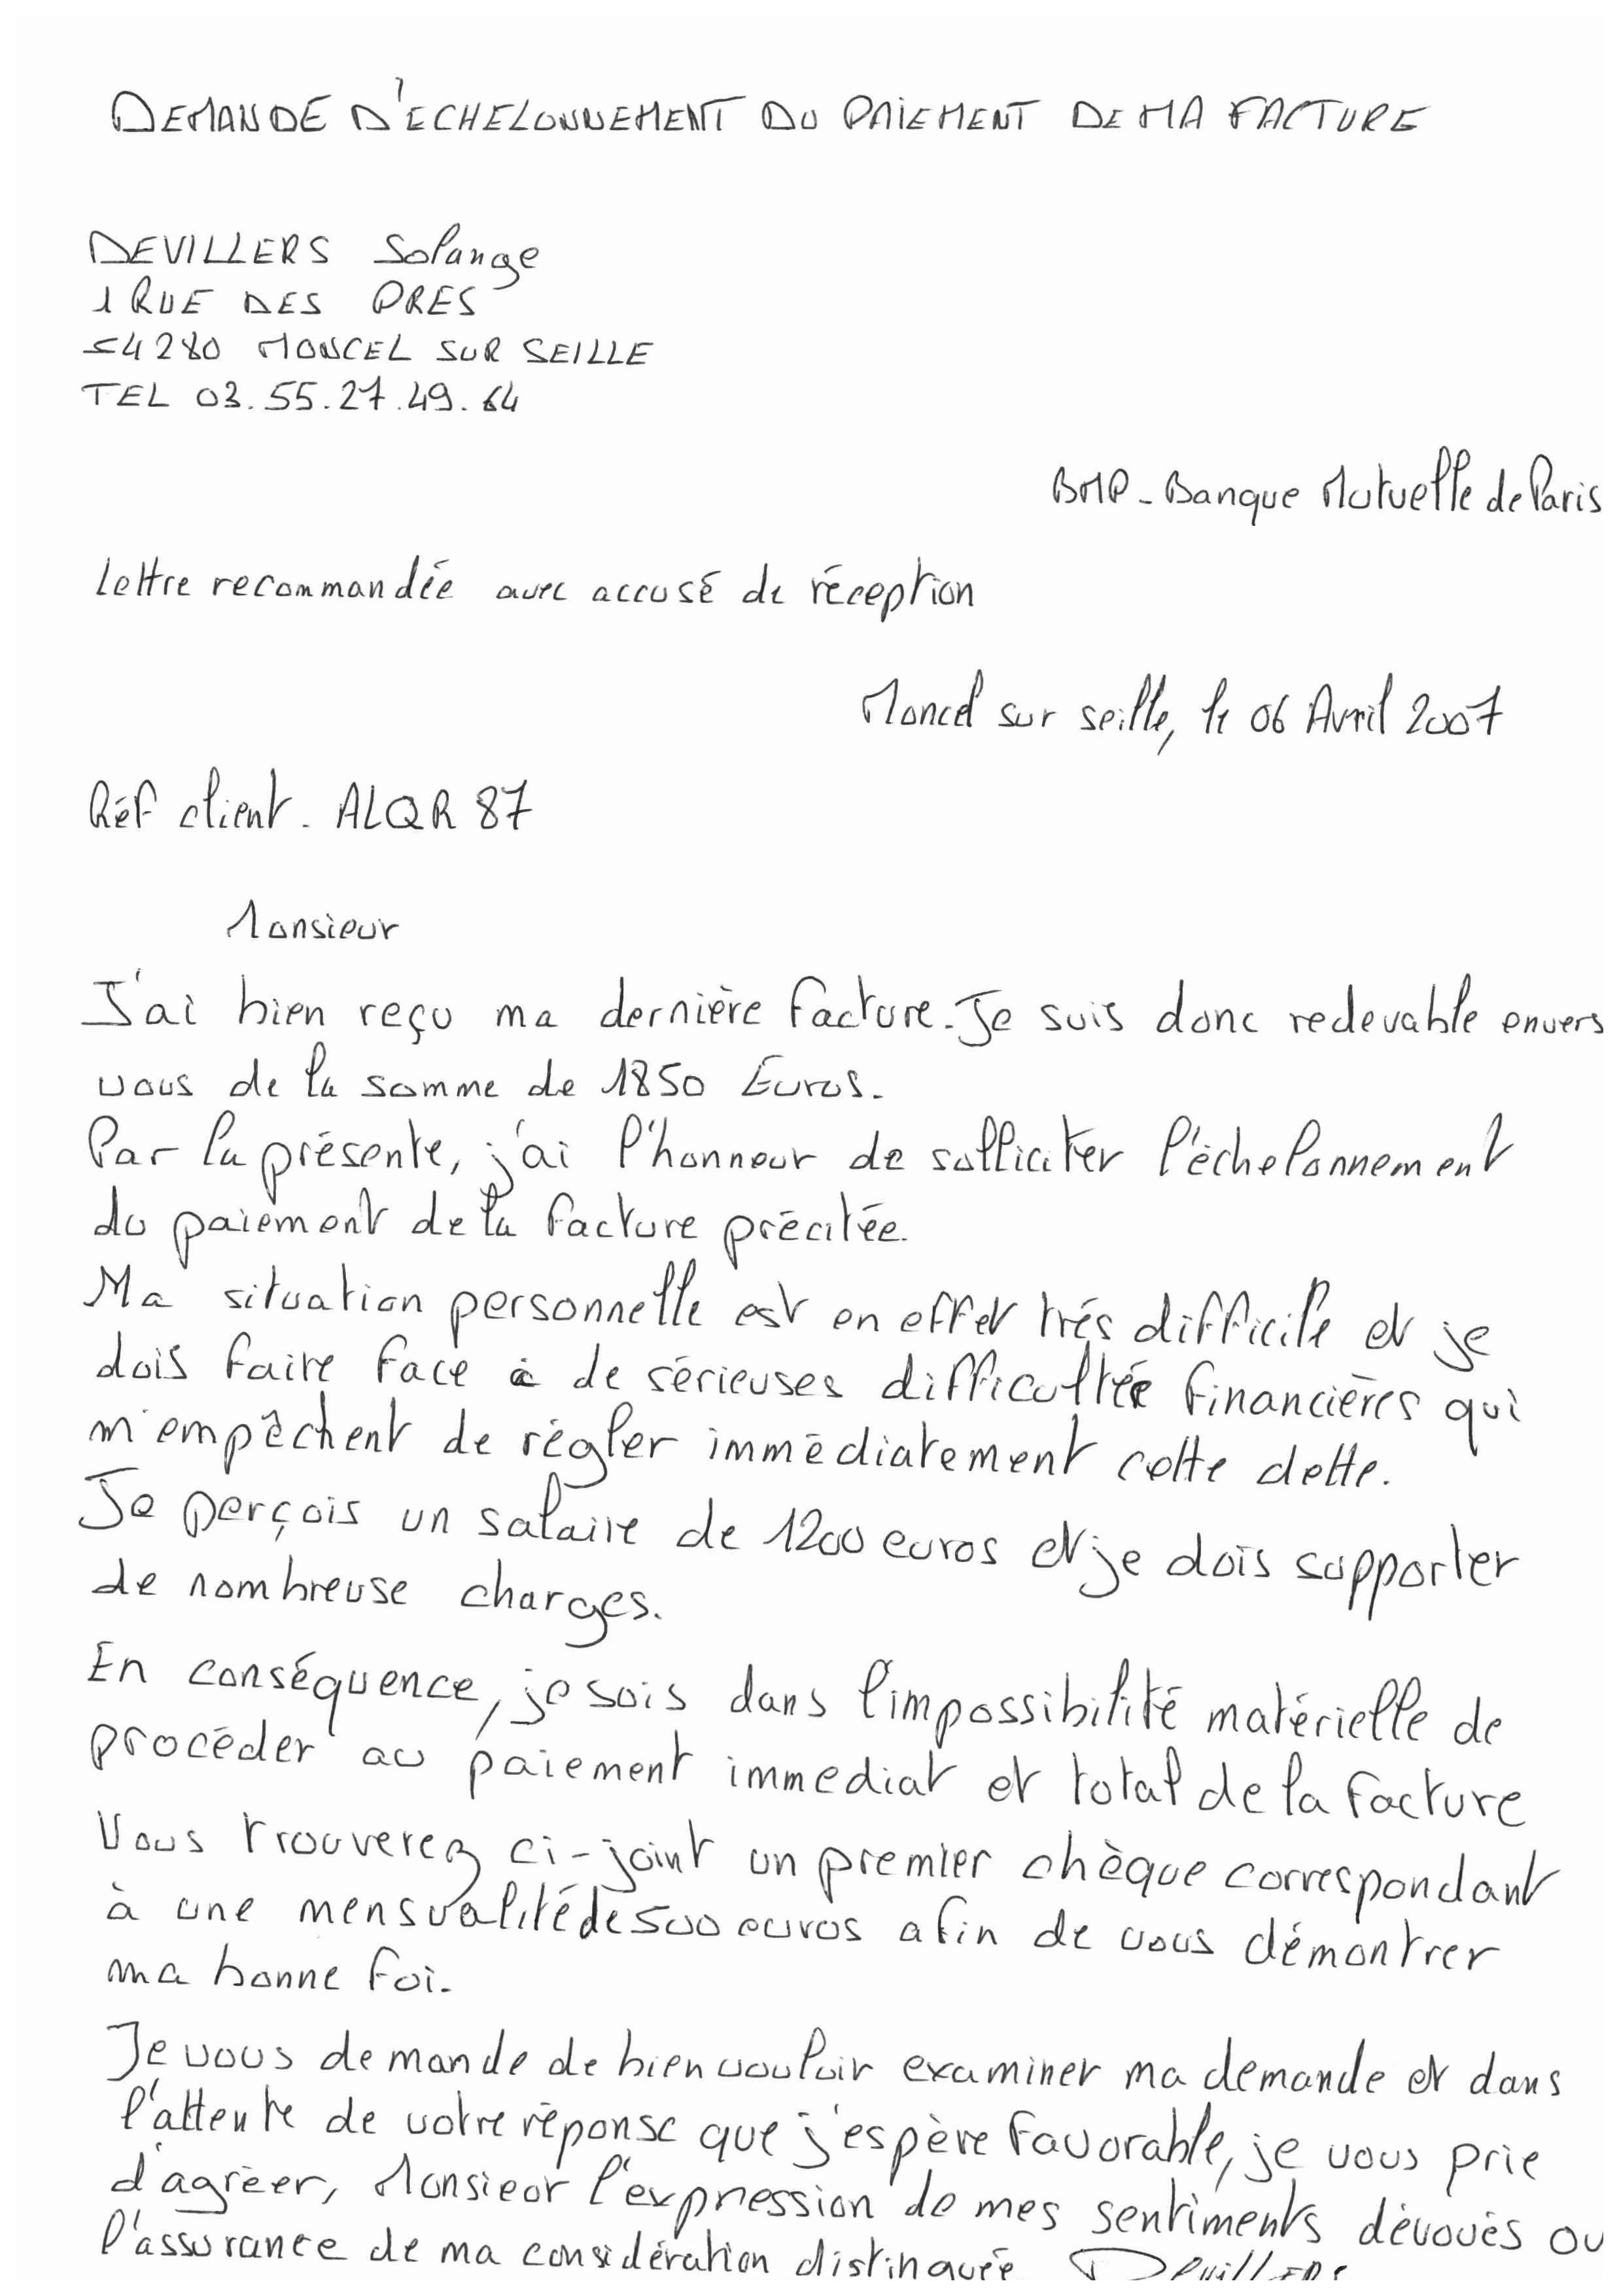 DEMANDE D'ECHELONNEMENT DU PAIEMENT DE MA FACTURE
DEVILLERS Solange
1 RUE DES PRES
54280 MONCEL SUR SEILLE
TEL 03.55.27.49.64
BMP - Banque Mutuelle de Paris
Lettre recommandée avec accusé de réception
Moncel sur seille, le 06 Avril 2007
Réf client. ALQR 87
Monsieur
J'ai bien reçu ma dernière facture. Je suis donc redevable envers
vous de la somme de 1850 Euros.
Par la présente, j'ai l'honneur de solliciter l'échelonnement
du paiement de la facture précitée.
Ma situation personnelle est en effet très difficile et je
dois faire face à de sérieuses difficultés financières qui
m'empêchent de régler immédiatement cette dette.
Je perçois un salaire de 1200 euros et je dois supporter
de nombreuse charges.
En conséquence, je suis dans l'impossibilité matérielle de
procéder au paiement immediat et total de la facture
Vous trouverez ci-joint un premier chèque correspondant
à une mensualité de 500 euros afin de vous démontrer
ma bonne foi.
Je vous demande de bien vouloir examiner ma demande et dans
l'attente de votre réponse que j'espère favorable, je vous prie
d'agréer, Monsieur l'expression de mes sentiments dévoués ou
l'assurance de ma considération distinguée Devillers